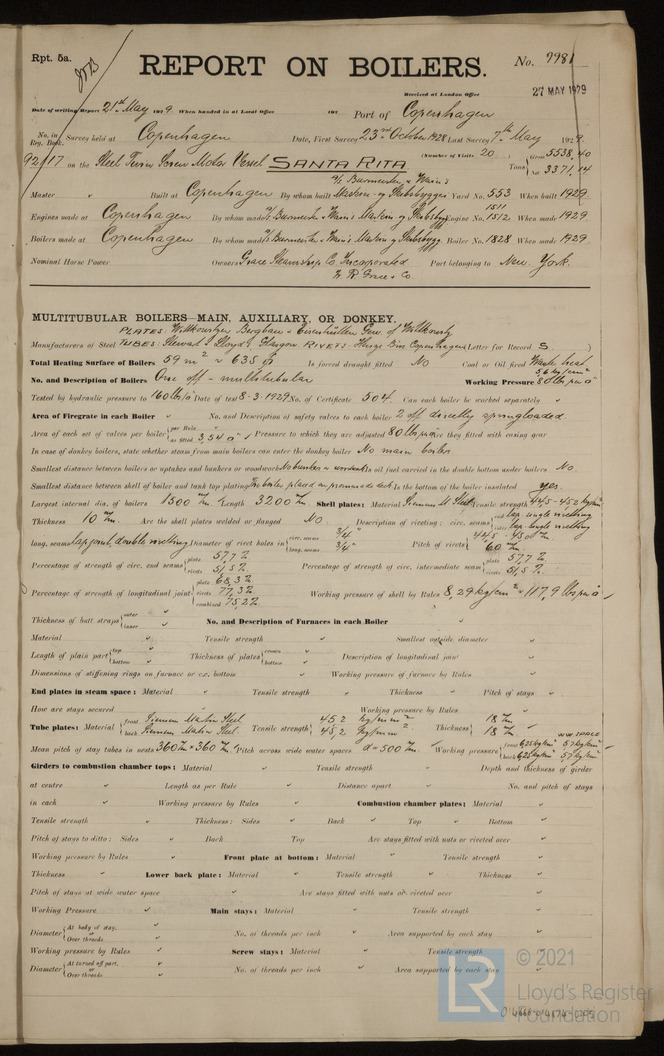 Rpt. 5a.
REPORT ON BOILERS.
No. 9981
Received at London Office
27 MAY 1929
Date of writing Report 21st May 1929. When handed in at Local Office 192 Port of Copenhagen
No. in Reg. Book. Survey held at Copenhagen Date, First Survey 23rd October 1928 Last Survey 7th May 1929.
(Number of Visits 20)
92117 on the Steel Twin Screw Motor Vessel SANTA RITA Tons Gross 5538,40 Net 3371,14
Master Built at Copenhagen By whom built A/S Burmeister & Wain's Maskin- og Skibsbyggeri Yard No. 553 When built 1929.
Engines made at Copenhagen By whom made A/S Burmeister & Wain's Maskin og Skibsbygg. Engine No. 1511 1512 When made 1929
Boilers made at Copenhagen By whom made A/S Burmeister & Wain's Maskin og Skibsbygg. Boiler No. 1828 When made 1929
Nominal Horse Power Owners Grace Steamship Co Incorporated Port belonging to New York.
W. R. Grace & Co.
MULTITUBULAR BOILERS—MAIN, AUXILIARY, OR DONKEY.
PLATES: Witkowitzer Bergbau & Eisenhütten Gew. of Witkowitz
Manufacturers of Steel TUBES: Stewart & Lloyd's Glasgow RIVETS: Copenhagen (Letter for Record S. )
Total Heating Surface of Boilers 59 m² ~ 635 □' Is forced draught fitted No Coal or Oil fired Waste heat
No. and Description of Boilers One off - multitubular Working Pressure 5,6 kg/cm² 80 lbs per □"
Tested by hydraulic pressure to 160 lbs/□" Date of test 8-3-1929 No. of Certificate 504. Can each boiler be worked separately "
Area of Firegrate in each Boiler " No. and Description of safety valves to each boiler 2 off directly springloaded
Area of each set of valves per boiler { per Rule as fitted 3,54 □" Pressure to which they are adjusted 80 lbs per □" Are they fitted with easing gear
In case of donkey boilers, state whether steam from main boilers can enter the donkey boiler No main boiler
Smallest distance between boilers or uptakes and bunkers or woodwork No bunkers or woodwork Is oil fuel carried in the double bottom under boilers No.
Smallest distance between shell of boiler and tank top plating The boiler placed on promenade deck Is the bottom of the boiler insulated yes.
Largest internal dia. of boilers 1500 m/m. Length 3200 m/m. Shell plates: Material Siemens M Steel Tensile strength 44,5-45,2 kg/m/m²
Thickness 10 m/m. Are the shell plates welded or flanged No. Description of riveting: circ. seams { end lap single riveting inter. lap single riveting
long. seams lap joint, double riveting Diameter of rivet holes in { circ. seams 3/4" long. seams 3/4" Pitch of rivets { 60 m/m.
Percentage of strength of circ. end seams { plate 57,7% rivets 51,5% Percentage of strength of circ. intermediate seam { plate 57,7% rivets 51,5%
Percentage of strength of longitudinal joint { plate 68,3% rivets 77,3% combined 75,2% Working pressure of shell by Rules 8,29 kg/cm² ~ 117,9 lbs per □"
Thickness of butt straps { outer inner " No. and Description of Furnaces in each Boiler "
Material " Tensile strength " Smallest outside diameter "
Length of plain part { top bottom " Thickness of plates { crown bottom " Description of longitudinal joint "
Dimensions of stiffening rings on furnace or c.c. bottom " Working pressure of furnace by Rules "
End plates in steam space: Material " Tensile strength " Thickness " Pitch of stays "
How are stays secured " Working pressure by Rules "
Tube plates: Material { front Siemens Martin Steel back Siemens Martin Steel Tensile strength { 45,2 kg/m/m² 45,2 kg/m/m² Thickness { 18 m/m 18 m/m
W.W. SPACE
Mean pitch of stay tubes in nests 360 m/m × 360 m/m. Pitch across wide water spaces d = 500 m/m. Working pressure { front 6,25 kg/cm² 5,7 kg/cm² back 6,25 kg/cm² 5,7 kg/cm²
Girders to combustion chamber tops: Material Tensile strength " Depth and thickness of girder
at centre " Length as per Rule " Distance apart " No. and pitch of stays
in each " Working pressure by Rules " Combustion chamber plates: Material "
Tensile strength " Thickness: Sides " Back " Top " Bottom "
Pitch of stays to ditto: Sides " Back " Top Are stays fitted with nuts or riveted over "
Working pressure by Rules " Front plate at bottom: Material " Tensile strength "
Thickness " Lower back plate: Material " Tensile strength " Thickness "
Pitch of stays at wide water space " Are stays fitted with nuts or riveted over "
Working Pressure " Main stays: Material " Tensile strength "
Diameter { At body of stay, or Over threads " No. of threads per inch " Area supported by each stay "
Working pressure by Rules " Screw stays: Material " Tensile strength "
Diameter { At turned off part, or Over threads " No. of threads per inch " Area supported by each stay "
© 2021
LR
Lloyd's Register
Foundation